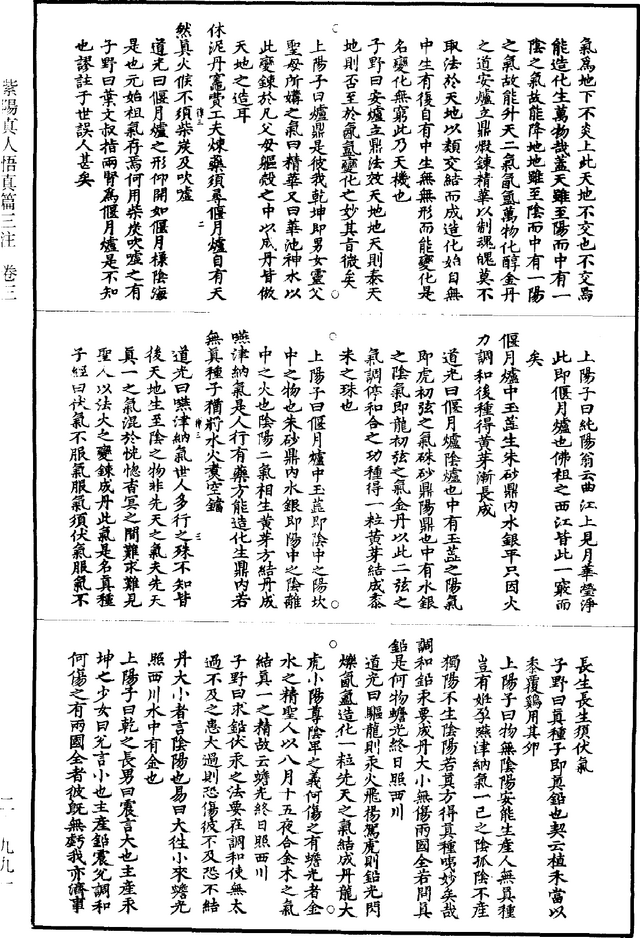 紫陽真人悟真篇三注　卷三
氣為地下不炎上此天地不交也不交焉
能造化生萬物哉蓋天雖至陽而中有一
陰之氣故能降地地雖至陰而中有一陽
之氣故能升天二氣氤氳萬物化醇金丹
之道安爐立鼎煅鍊精華以制魂魄莫不
取法於天地以類交結而成造化始自無
中生有復自有中生無無形而能變化是
名變化無窮此乃天機也
子野曰安爐立鼎法效天地地天則泰天
地則否至於氤氳變化之妙其旨微矣
上陽子曰爐鼎是彼我乾坤即男女靈父
聖母所媾之氣曰精華又曰華池神水以
此變鍊於凡父母軀殼之中以成丹皆倣
天地之造耳
休泥丹竈費工夫煉藥須尋偃月爐自有天
然真火候不須柴炭及吹噓
道光曰偃月爐之形仰開如偃月樣陰海
是也元始祖氣存焉何用柴炭吹噓之有
子野曰葉文叔指兩腎為偃月爐是不知
也謬註于世誤人甚矣
上陽子曰純陽翁云曲江上見月華瑩淨
此即偃月爐也佛祖之西江皆此一竅而
矣
偃月爐中玉蘂生朱砂鼎內水銀平只因火
力調和後種得黃芽漸長成
道光曰偃月爐陰爐也中有玉蘂之陽氣
即虎初弦之氣硃砂鼎陽鼎也中有水銀
之陰氣即龍初弦之氣金丹以此二弦之
氣調停和合之功種得一粒黃芽結成黍
米之珠也
上陽子曰偃月爐中玉蘂即陰中之陽坎
中之物也朱砂鼎內水銀即陽中之陰離
中之火也陰陽二氣相生黃芽方結丹成
嚥津納氣是人行有藥方能造化生鼎內若
無真種子猶將水火煮空鐺
道光曰嚥津納氣世人多行之殊不知皆
後天地生至陰之物非先天之氣夫先天
真一之氣混於恍惚杳冥之間難求難見
聖人以法火之變鍊成丹此氣是名真種
子經曰伏氣不服氣服氣須伏氣服氣不
長生長生須伏氣
子野曰真種子即真鉛也契云植禾當以
黍覆鷄用其卵
上陽子曰物無陰陽安能生產人無真種
豈有姙孕嚥津納氣一己之陰孤陰不產
獨陽不生陰陽若真方得真種哪妙矣哉
調和鉛汞要成丹大小無傷兩國全若問真
鉛是何物蟾光終日照西川
道光曰驅龍則汞火飛揚駕虎則鉛光閃
爍氤氳造化一粒先天之氣結成丹龍大
虎小陽尊陰卑之義何傷之有蟾光者金
水之精聖人以八月十五夜合金木之氣
結真一之精故云蟾光終日照西川
子野曰求鉛伏汞之法要在調和使無太
過不及之患大過則恐傷彼不及恐不結
丹大小者言陰陽也易曰大往小來蟾光
照西川水中有金也
上陽子曰乾之長男曰震言大也主產汞
坤之少女曰兌言小也主產鉛震兌調和
何傷之有兩國全者彼既無虧我亦濟事
二一九九一